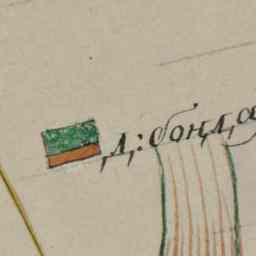 Д: бонда